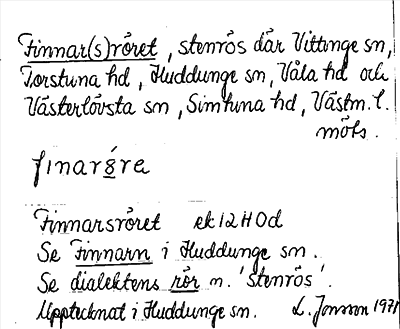 Finnar(s)röret, stenrös där Vittinge sn,
Torstuna hd, Huddunge sn, Våla hd och
Västerlövsta sn, Simtuna hd, Västm. l.
möts.
finarö̱ra
Finnarsröret ek 12 H Od
Se Finnarn i Huddunge sn.
Se dialektens rör n. 'stenrös'.
Upptecknat i Huddunge sn. L. Jonson 1971